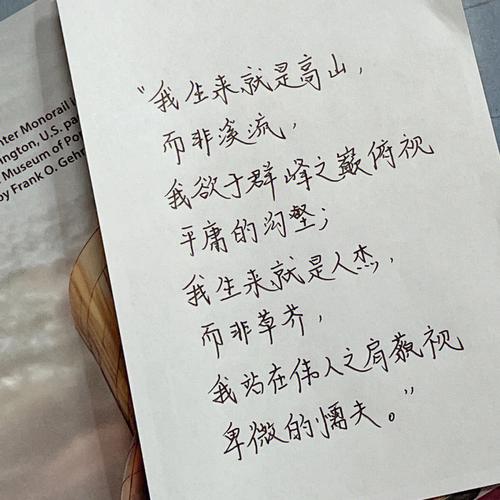 nter Monorail i
ington, U.S. pa
Museum of Po
by Frank O. Geh
“我生来就是高山，
而非溪流，
我欲于群峰之巅俯视
平庸的沟壑；
我生来就是人杰，
而非草芥，
我站在伟人之肩藐视
卑微的懦夫。”